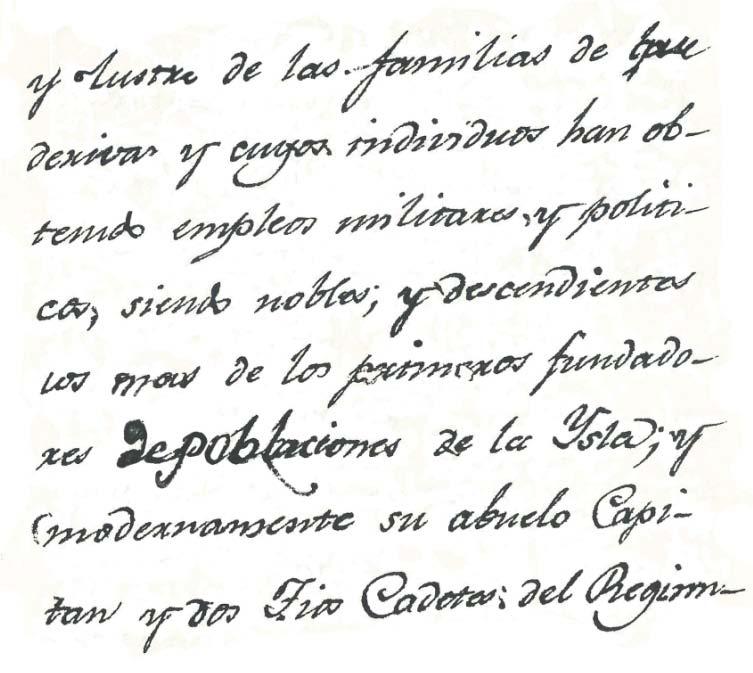 y lustre de las familias de que
derivan y cuyos individuos han ob-
tenido empleos militares, y politi-
cos, siendo nobles; y descendientes
los mas de los primeros fundado-
res de poblaciones de la Ysla; y
modernamente su abuelo Capi-
tan y dos Tios Cadetes; del Regim-